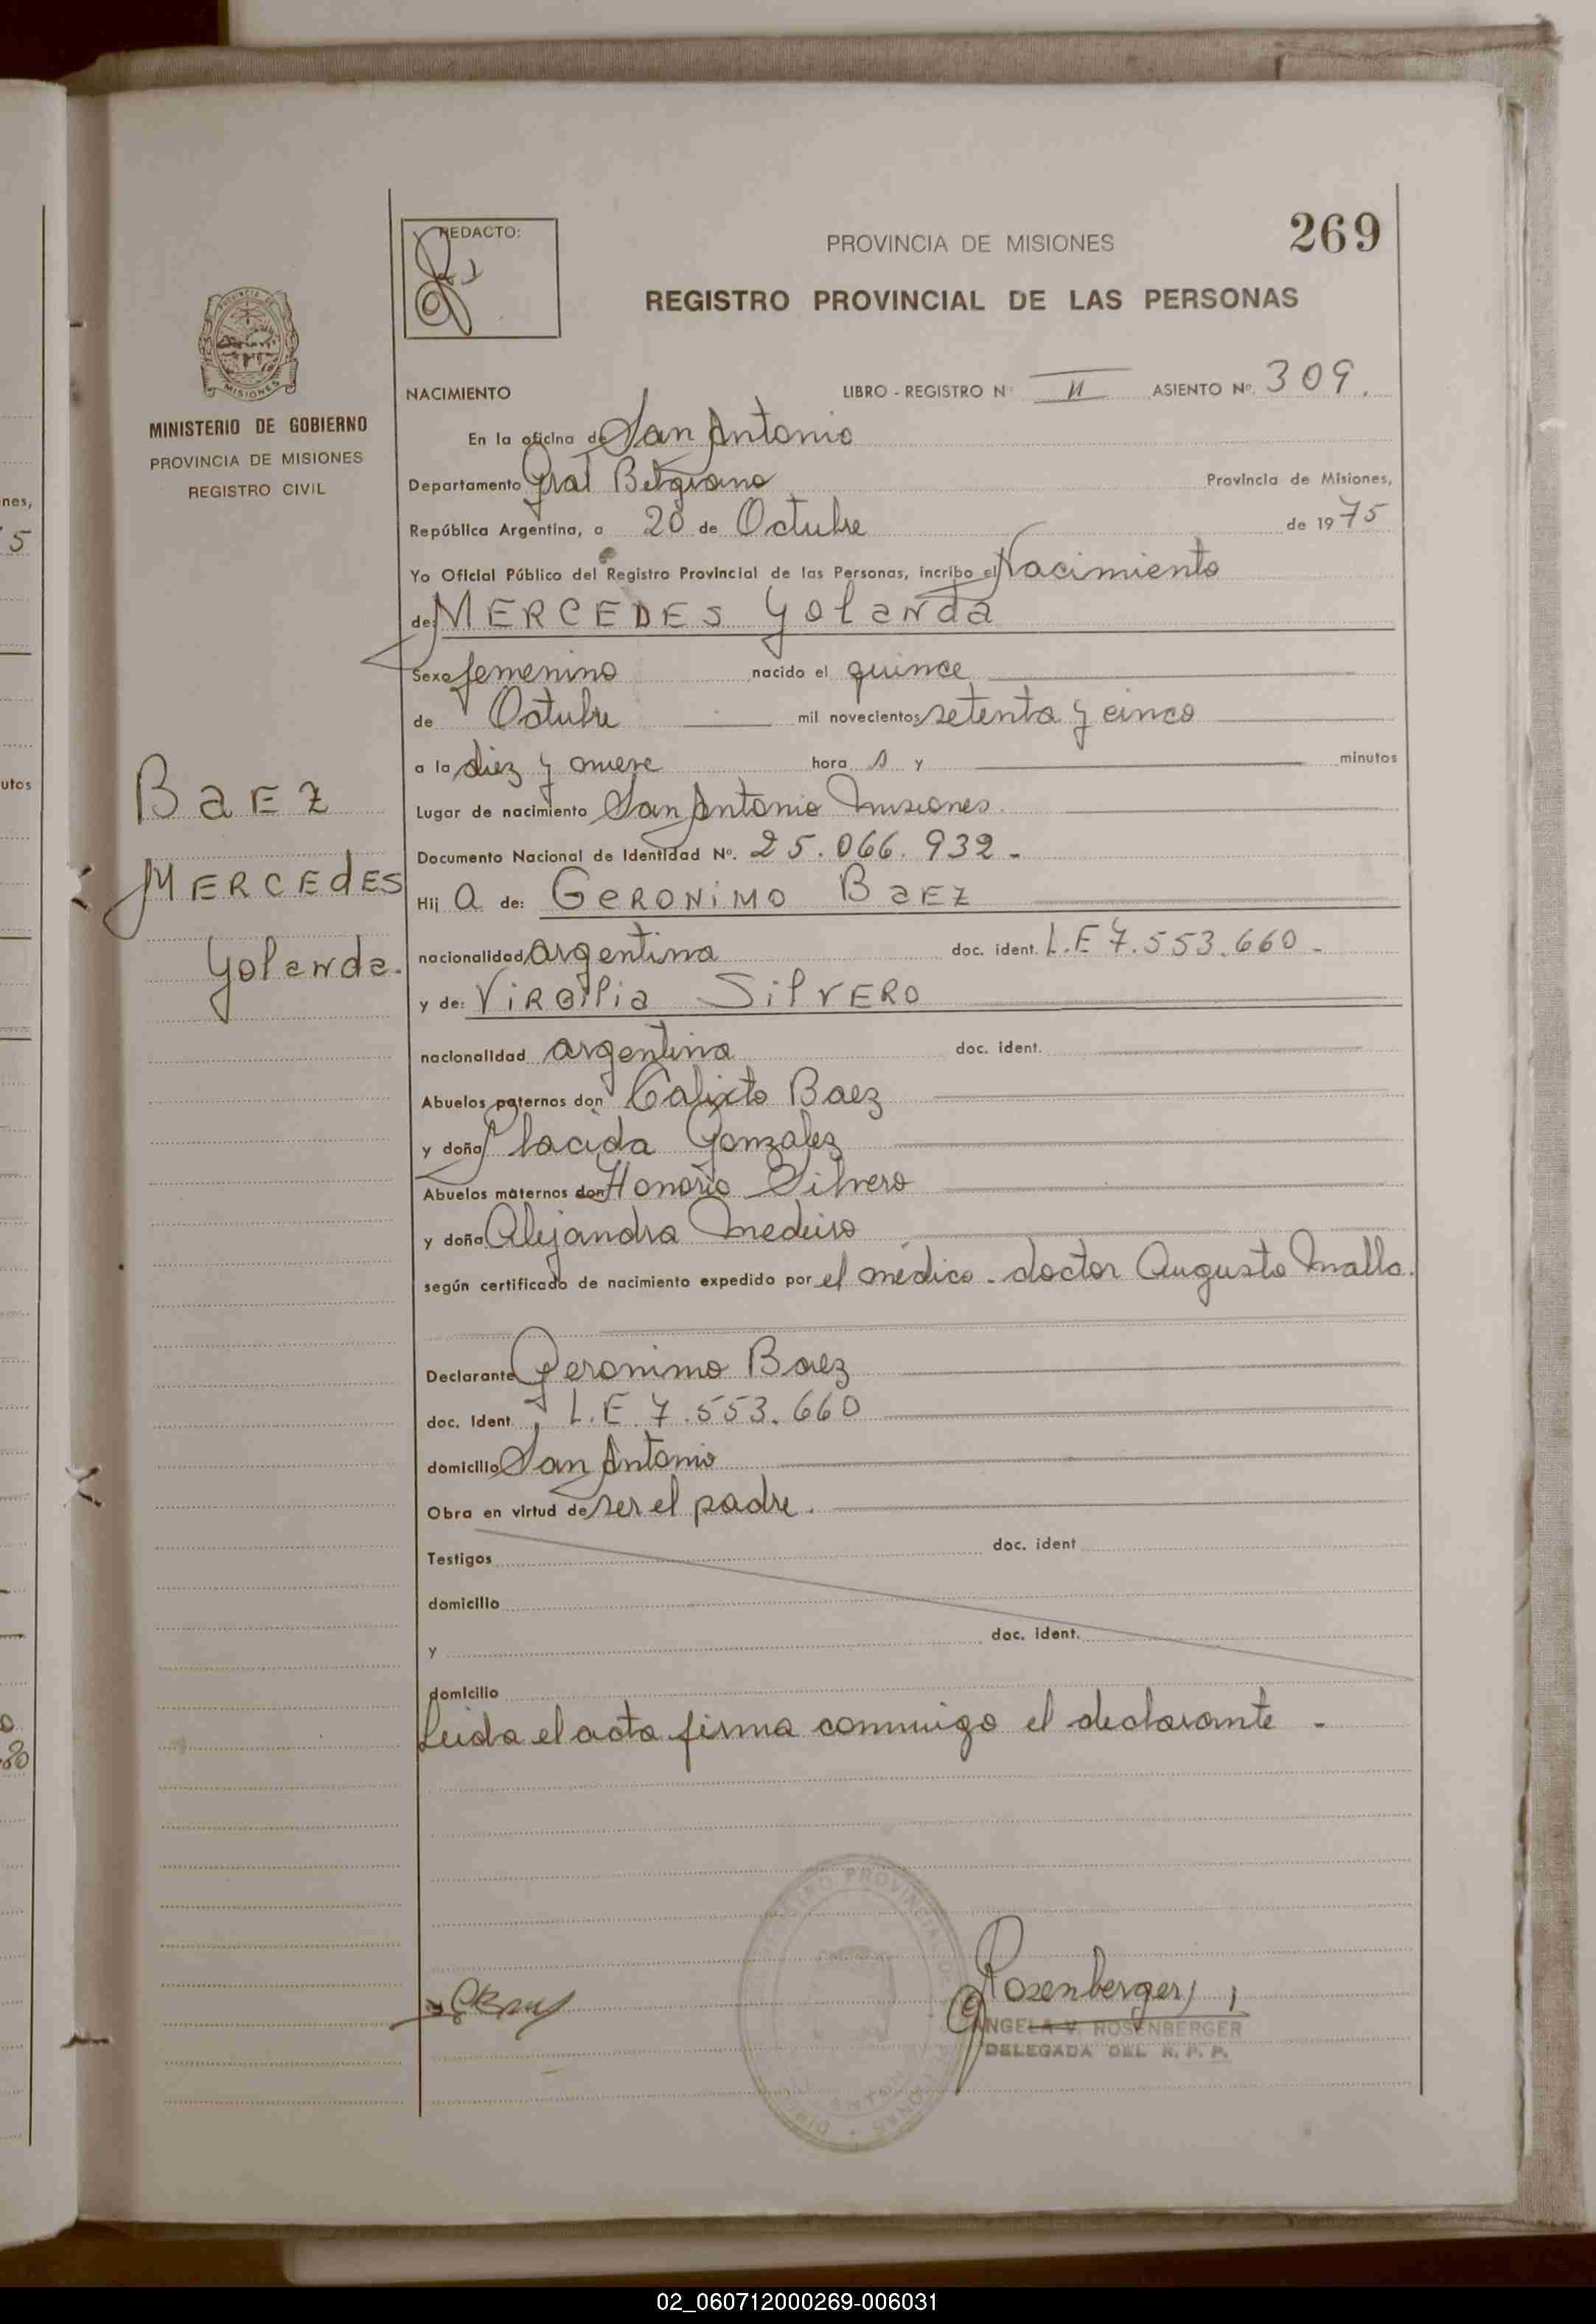 269
REDACTO:
PROVINCIA DE MISIONES
REGISTRO PROVINCIAL DE LAS PERSONAS
MISIONES
MINISTERIO DE GOBIERNO
PROVINCIA DE MISIONES
REGISTRO CIVIL
BaEz
MERCEdES
Yolanda.
NACIMIENTO LIBRO - REGISTRO Nº II ASIENTO Nº. 309.
En la oficina de San Antonio
Departamento Gral Belgrano Provincia de Misiones,
República Argentina, a 20 de Octubre de 1975
Yo Oficial Público del Registro Provincial de las Personas, incribo el Nacimiento
de: MERCEDES Yolanda
Sexo femenino nacido el quince
de Octubre mil novecientos setenta y cinco
a la diez y nueve hora s y minutos
Lugar de nacimiento San Antonio Misiones.
Documento Nacional de Identidad Nº. 25.066.932-
Hij a de: GERONIMO BaEz
nacionalidad argentina doc. ident. L.E 7.553.660-
y de: VIRGILIa SILVERO
nacionalidad argentina doc. ident.
Abuelos paternos don Calixto Baez
y doña Placida Gonzalez
Abuelos maternos don Honorio Silvero
y doña Alejandra Medeiro
según certificado de nacimiento expedido por el médico - doctor Augusto Mallo.
Declarante Geronimo Baez
doc. Ident. L.E. 7.553.660
domicilio San Antonio
Obra en virtud de ser el padre.
Testigos doc. ident
domicilio
y doc. ident.
domicilio
Leida el acta firma conmigo el declarante -
Rosenberger
ANGELA V. ROSENBERGER
DELEGADA DEL R. P. P.
nes,
5
utos
02_060712000269-006031